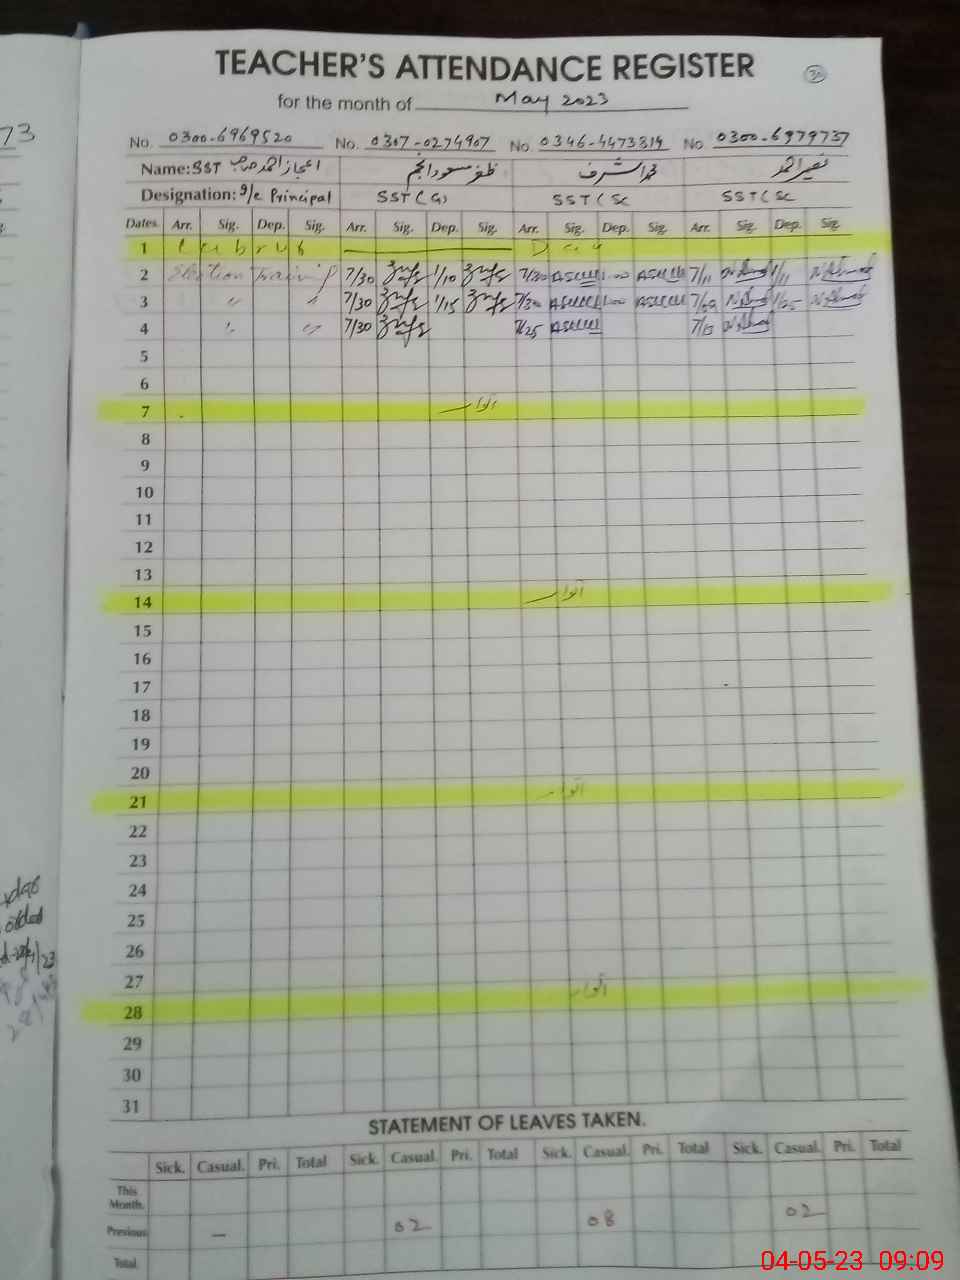 TEACHER'S ATTENDANCE REGISTER
for the month of May 2023
No. 0300-6969520 No. 0307-0274907 No 0346-4473814 No 0300-6979737
Name: SST اعجاز احمد صاحب ظفر مسعود انجم محمد اشرف نصیر احمد
Designation: I/c Principal SST (G) SST (SC SST (SC
Dates Arr. Sig. Dep. Sig. Arr. Sig. Dep. Sig. Arr. Sig. Dep. Sig. Arr. Sig. Dep. Sig.
1 Day
2 Election Training 7/30 1/10 7/30 1.00 7/11 1/11
3 " " 7/30 1/15 7/30 1.00 7/09 1/25
4 " " 7/30 7/25 7/13
5
6
7 اتوار
8
9
10
11
12
13
14 اتوار
15
16
17
18
19
20
21 اتوار
22
23
24
25
26
27
28 اتوار
29
30
31
STATEMENT OF LEAVES TAKEN.
Sick. Casual. Pri. Total Sick. Casual. Pri. Total Sick. Casual. Pri. Total Sick. Casual. Pri. Total
This Month.
Previous — 02 08 02
Total.
04-05-23 09:09